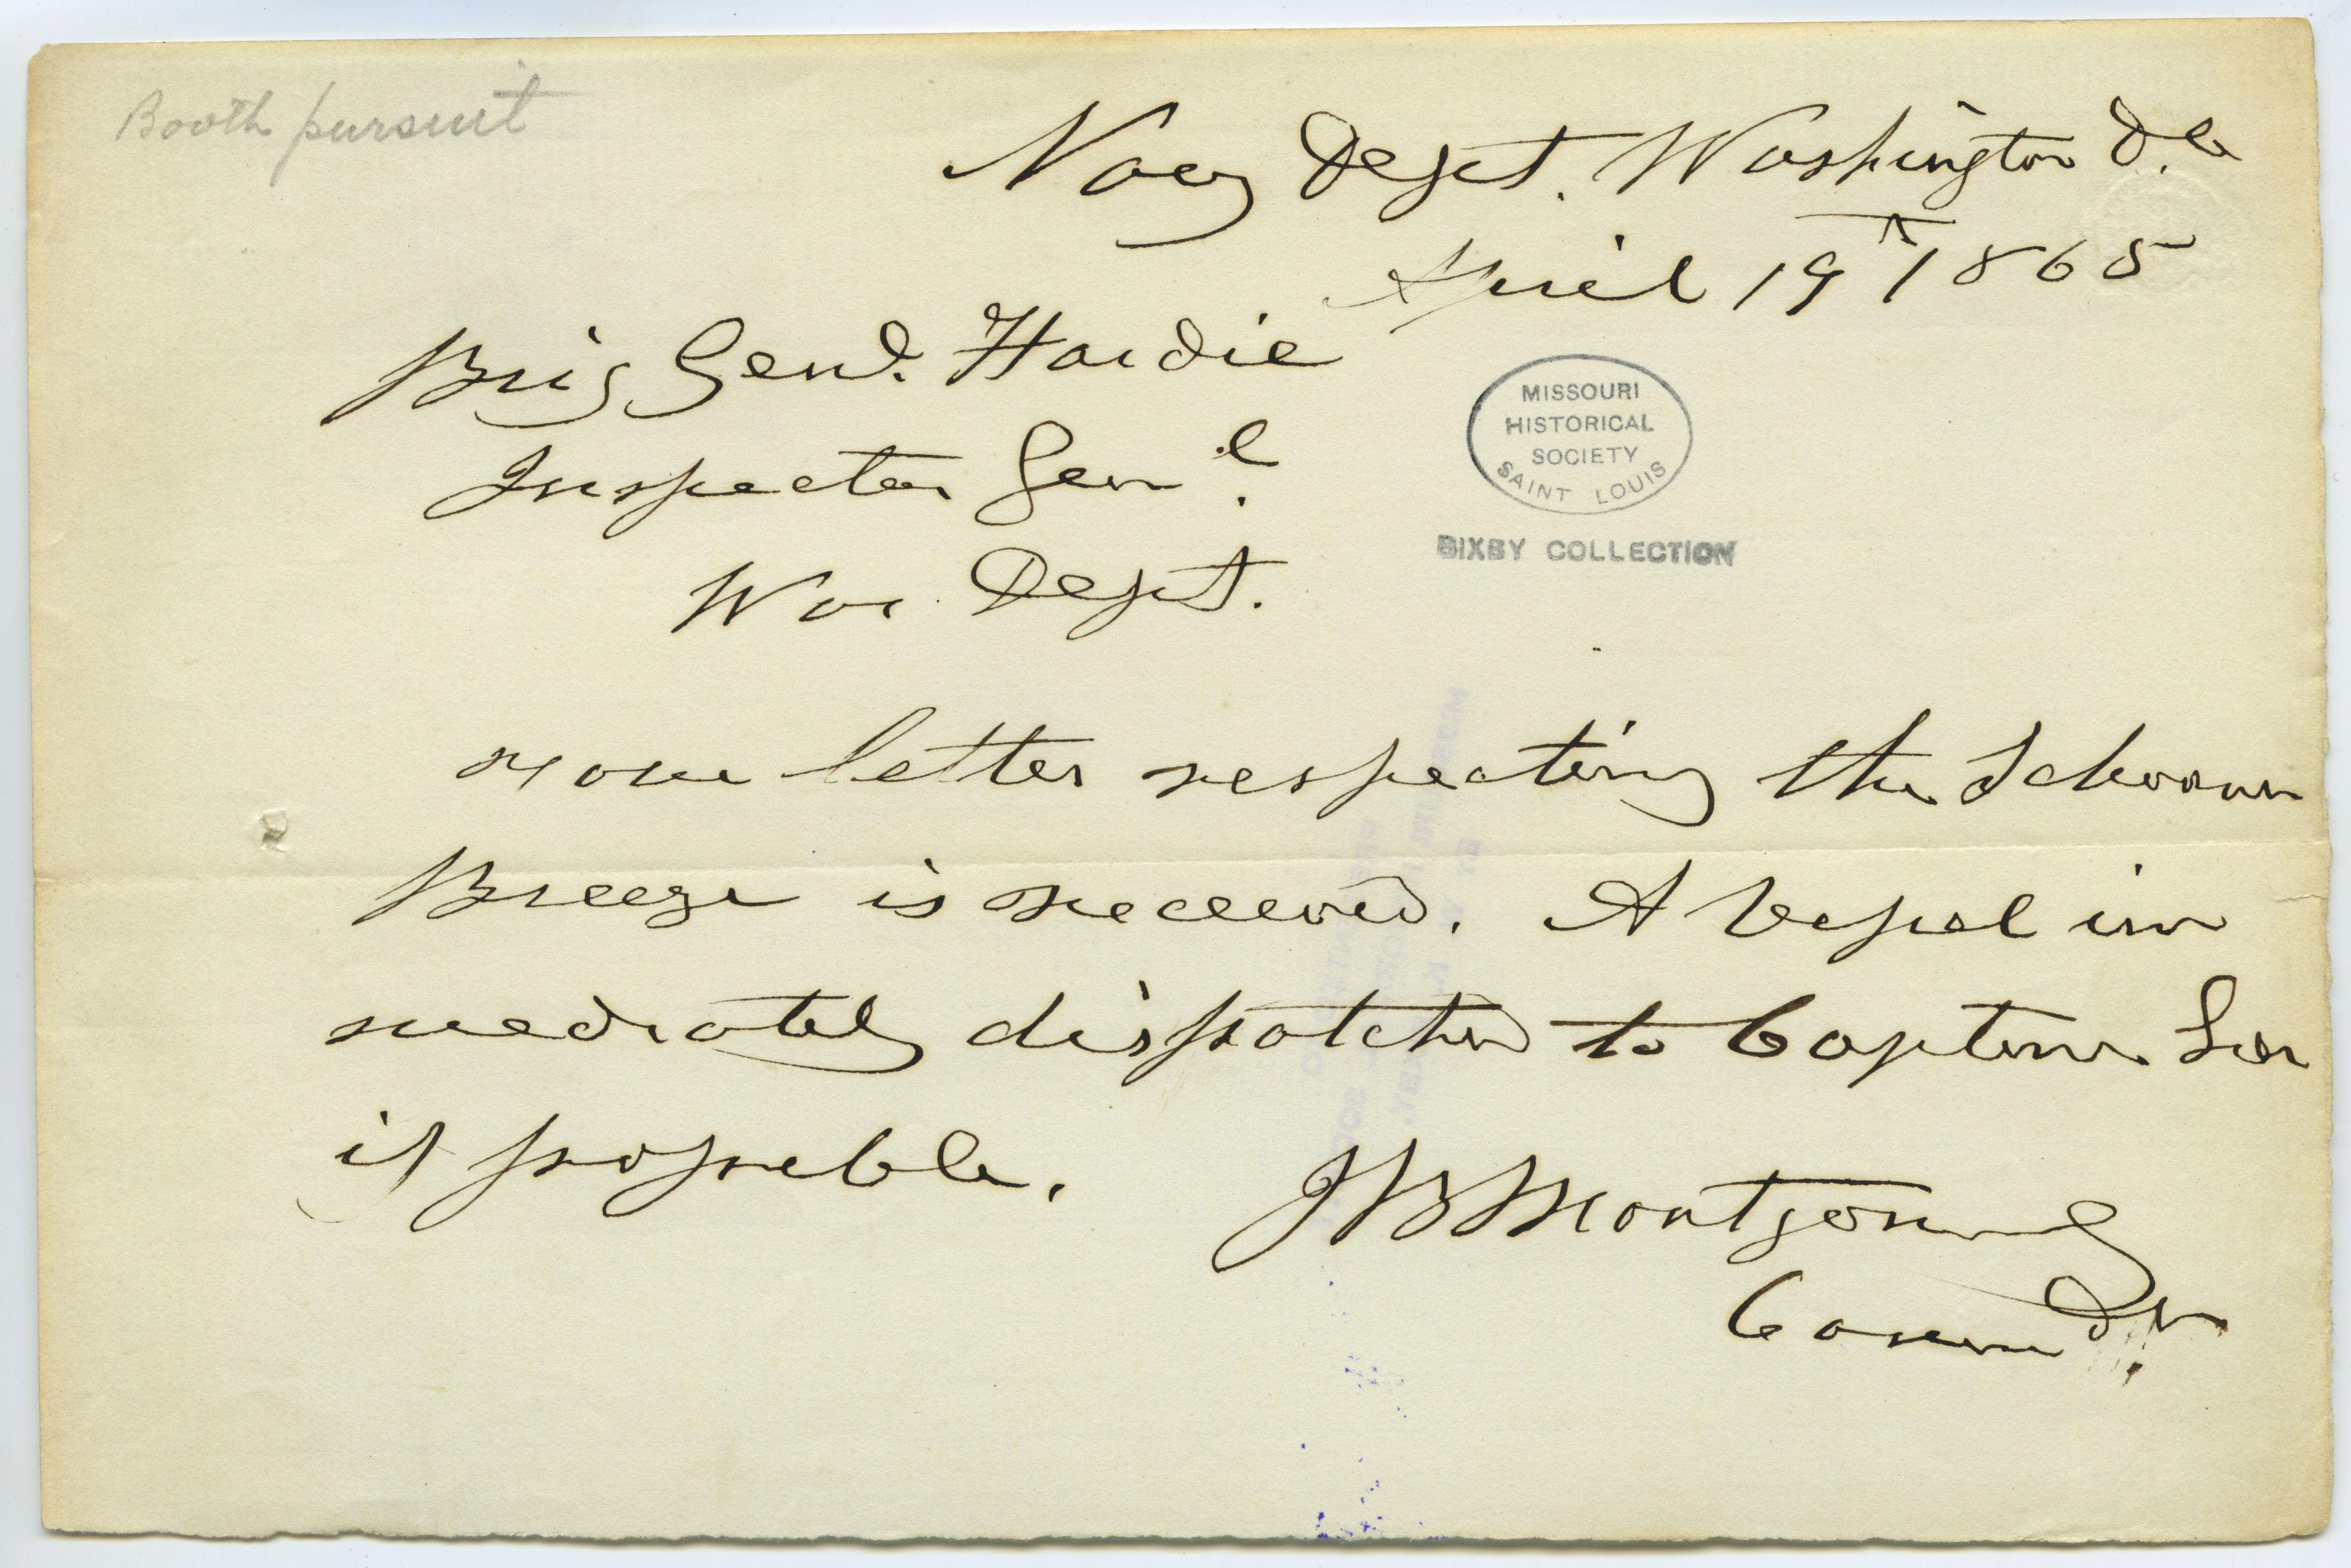 Booth pursuit
Navy Dept. Washington D.C
April 19th 1865
Brig Genl. Hardie
Inspector Genl.
War Dept.
MISSOURI
HISTORICAL
SOCIETY
SAINT LOUIS
BIXBY COLLECTION
Your letter respecting the Schooner
Breeze is received. A Vessel im
mediately dispatched to Capture her
if possible.
JB Montgomery
Commdr